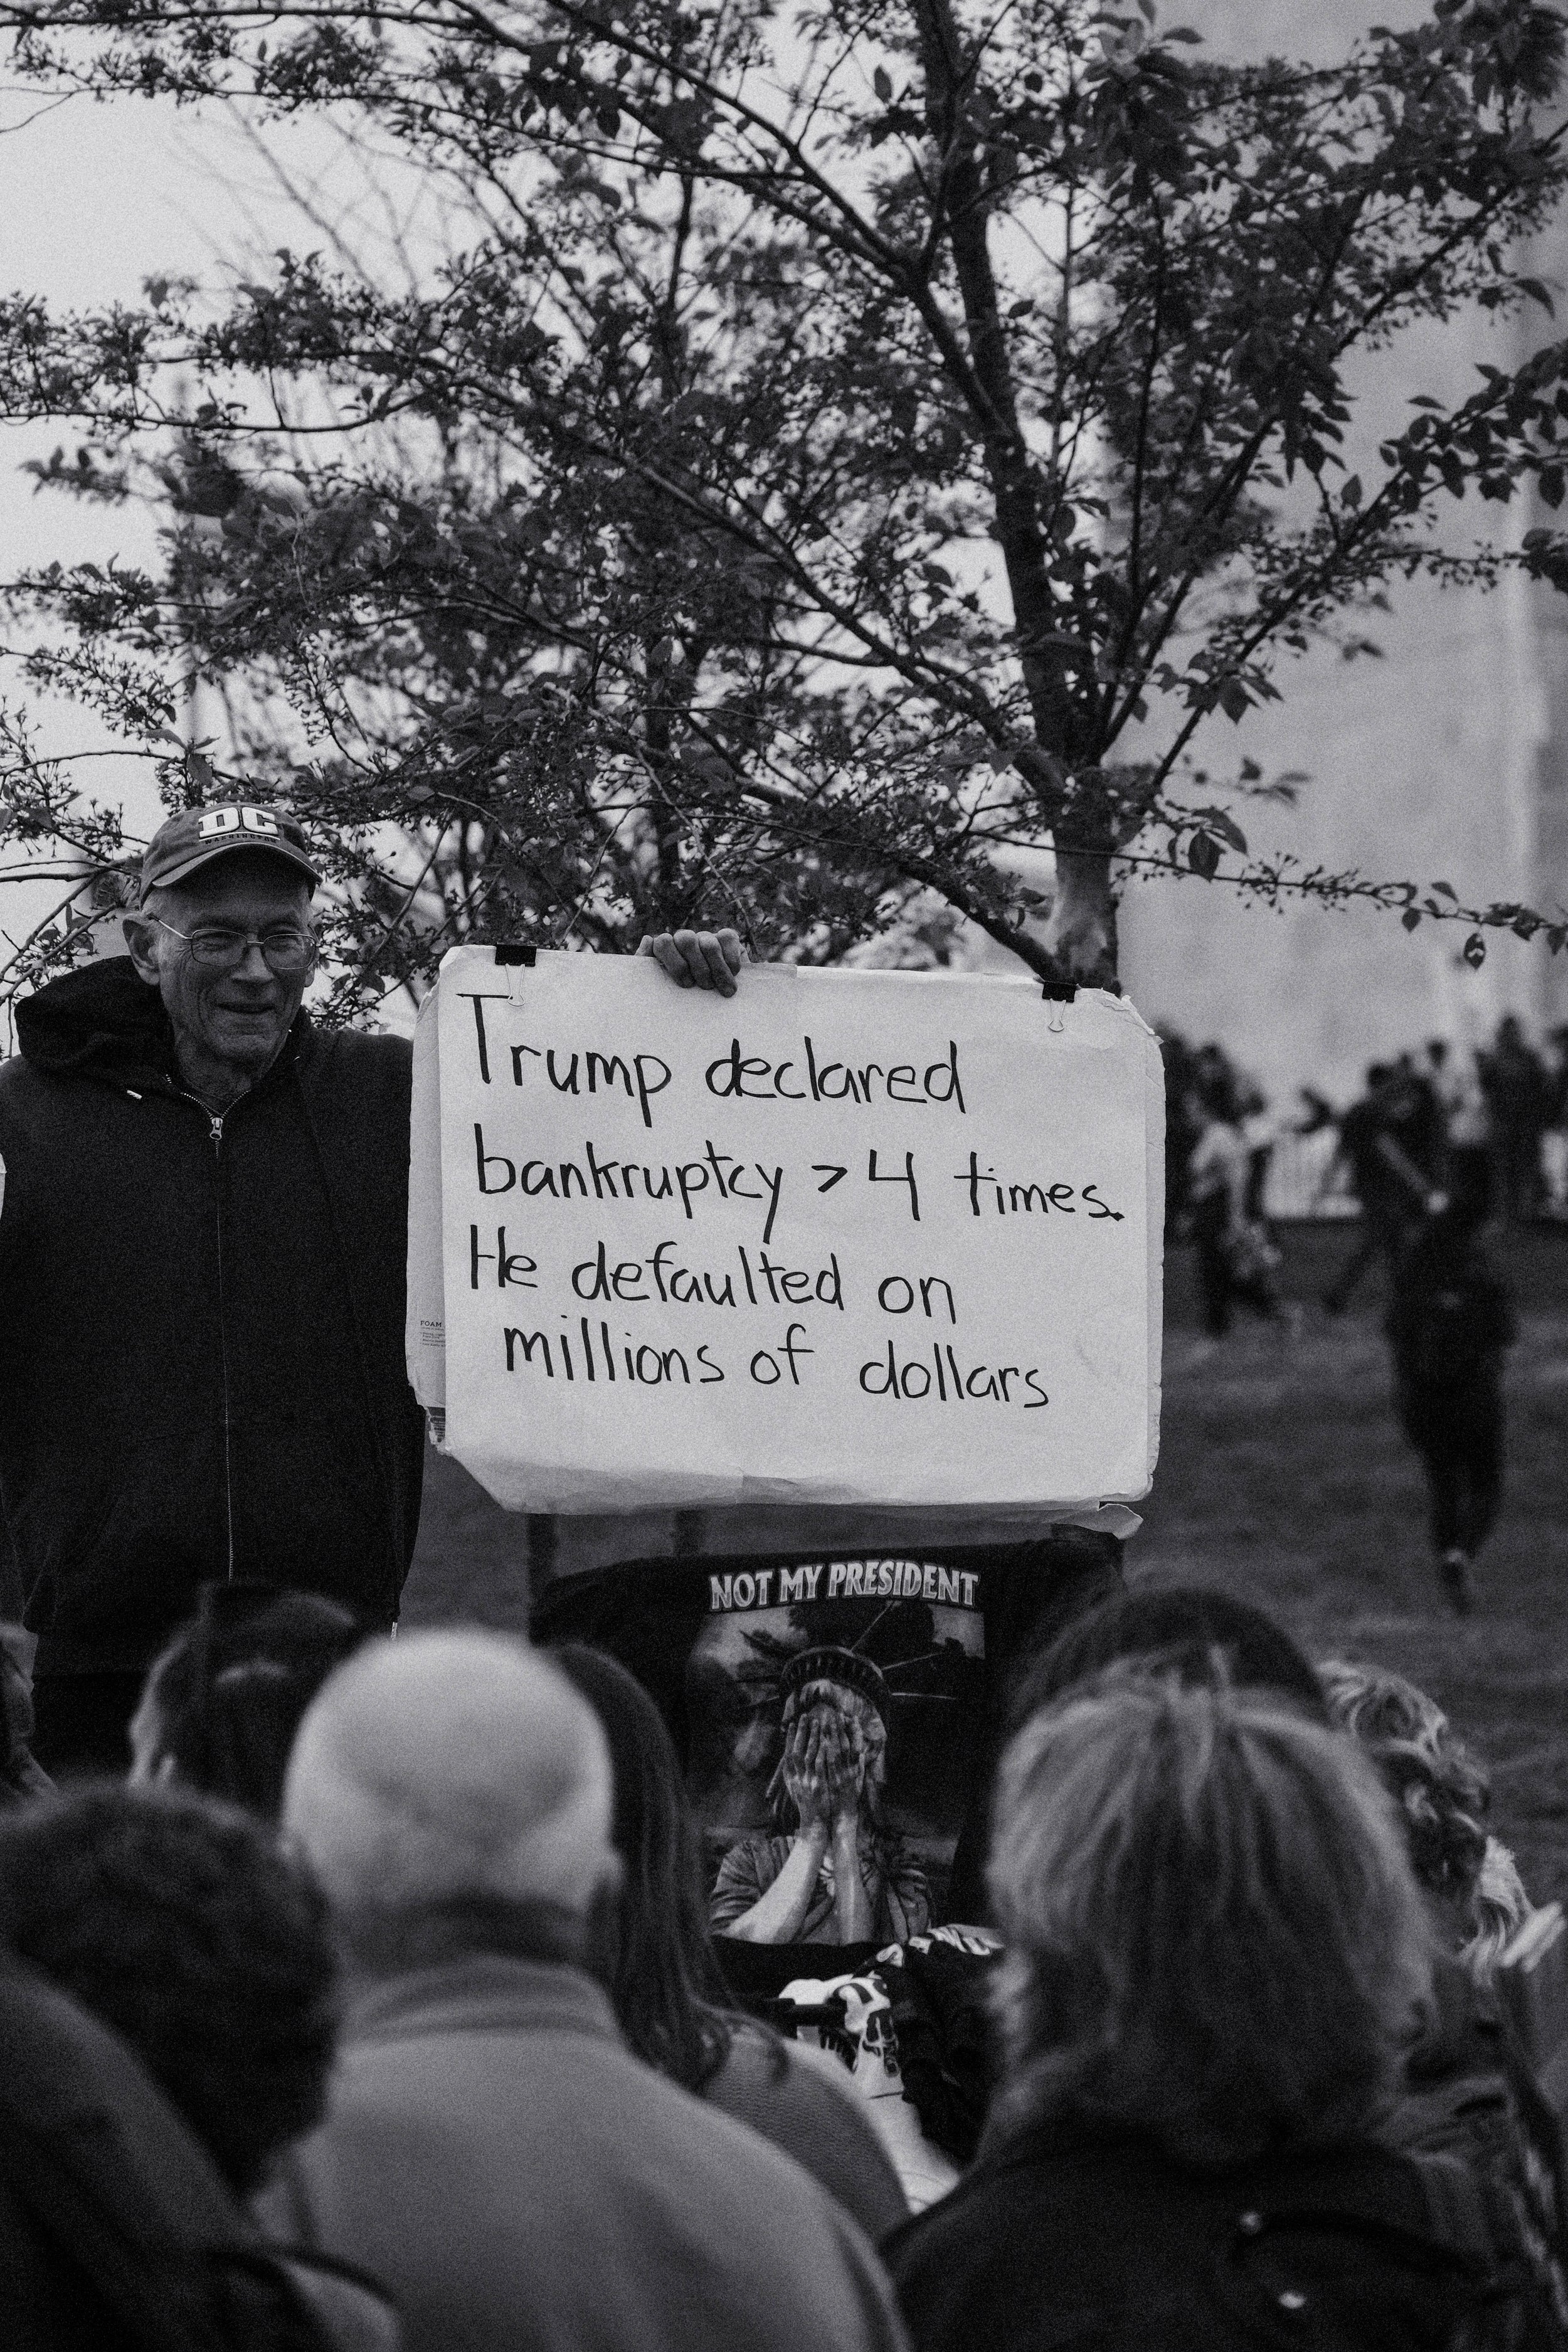 DC
WASHINGTON
Trump declared
bankruptcy > 4 times.
He defaulted on
millions of dollars
FOAM
NOT MY PRESIDENT